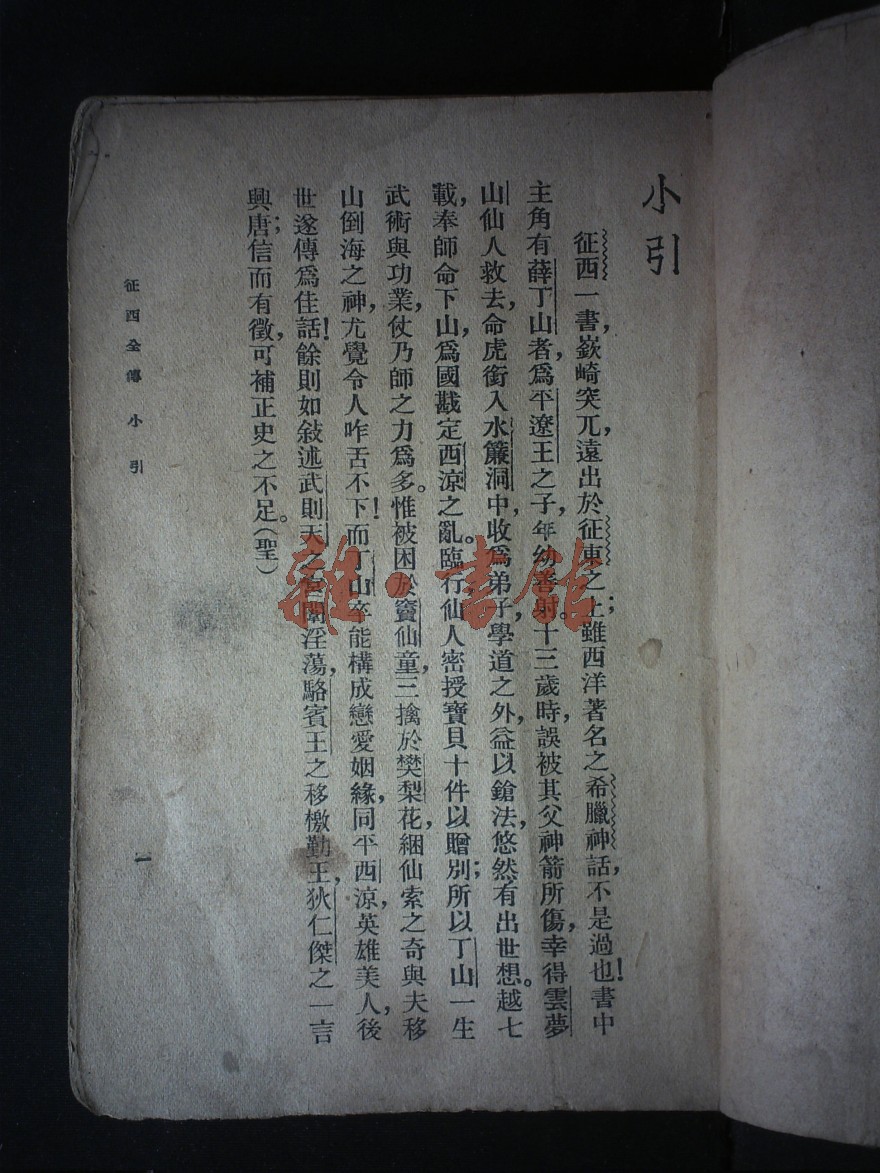 小引
征西一書，嶔崎突兀，遠出於征東之上；雖西洋著名之希臘神話，不是過也！書中
主角有薛丁山者，爲平遼王之子，年幼善射。十三歲時，誤被其父神箭所傷，幸得雲夢
山仙人救去，命虎銜入水簾洞中，收爲弟子，學道之外，益以鎗法，悠然有出世想。越七
載，奉師命下山，爲國戡定西涼之亂。臨行，仙人密授寶貝十件以贈別；所以丁山一生
武術與功業，仗乃師之力爲多。惟被困於竇仙童，三擒於樊梨花，綑仙索之奇與夫移
山倒海之神，尤覺令人咋舌不下！而丁山卒能構成戀愛姻緣，同平西涼，英雄美人，後
世遂傳爲佳話！餘則如敍述武則天之宮闈淫蕩，駱賓王之移檄勤王，狄仁傑之一言
興唐；信而有徵，可補正史之不足。（聖）
征西全傳 小引
一
雜·書館